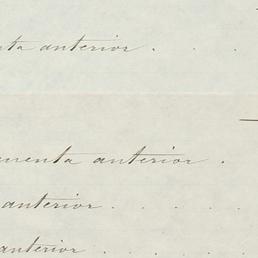 anterior . . .
anterior .
anterior . . . .
anterior . . . . .